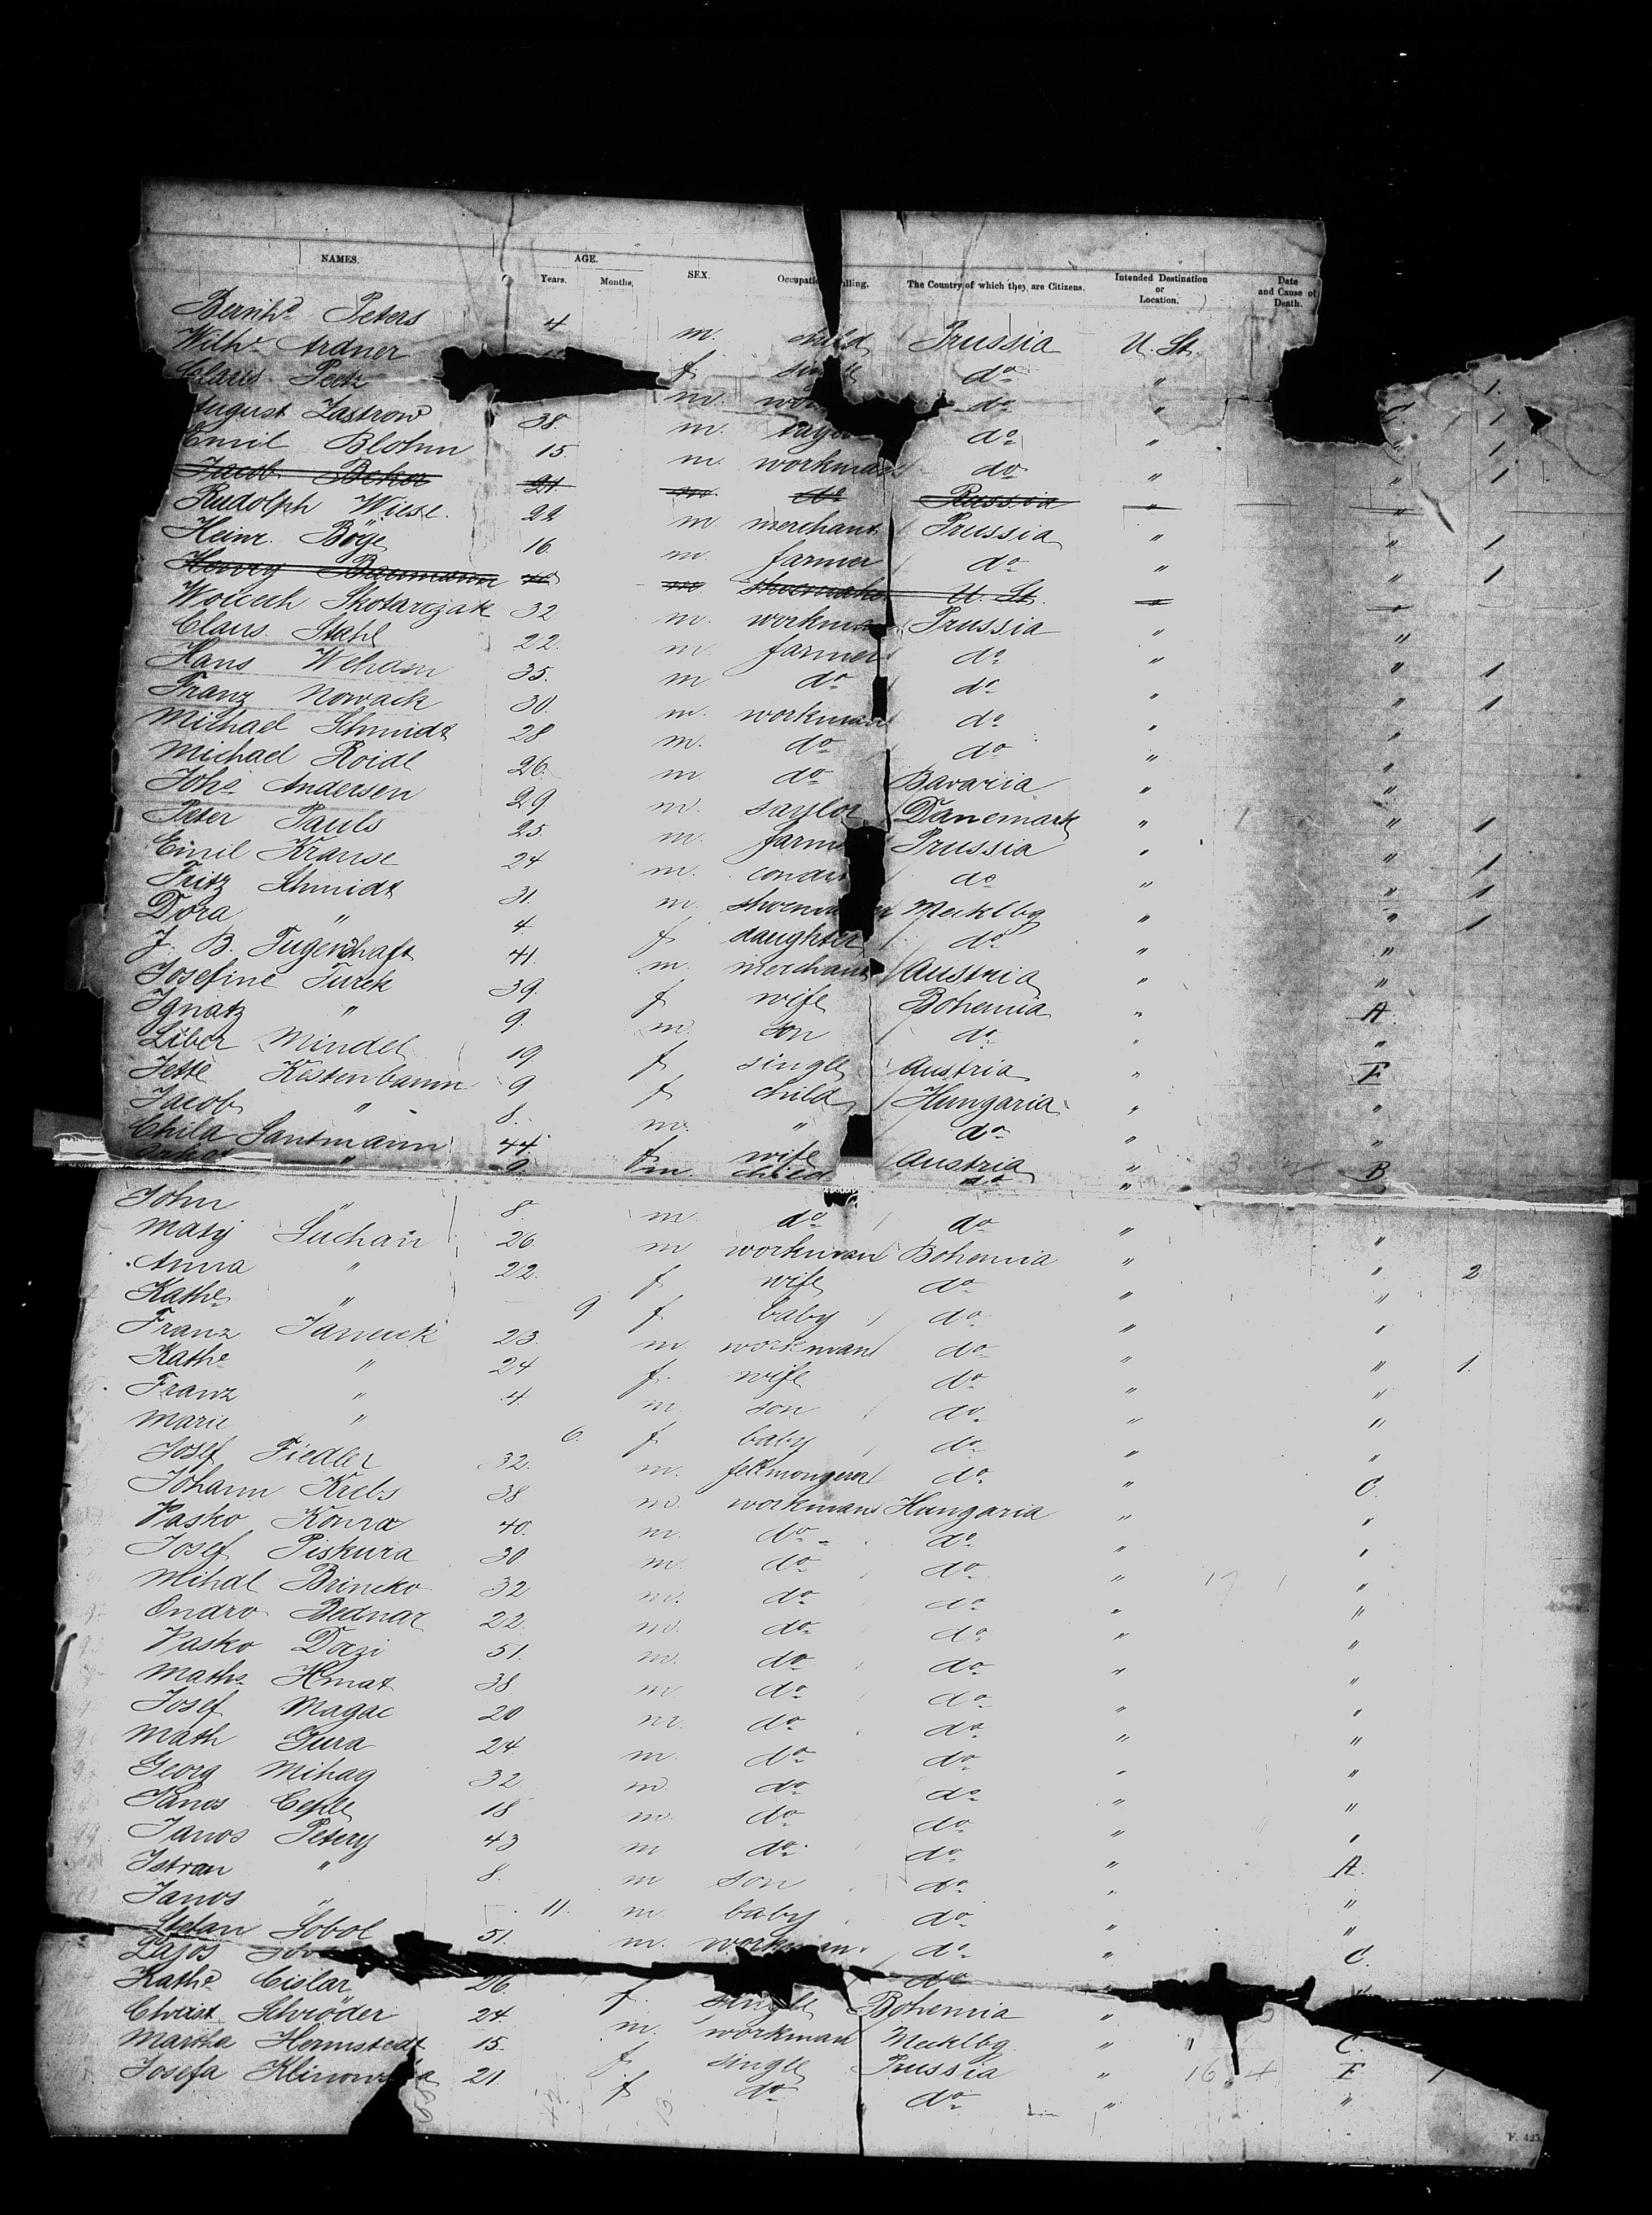 NAMES. AGE. SEX. Occupatio lling. The Country of which they are Citizens. Intended Destination or Location. Date and Cause of Death.
Years. Months.
Bernhd Peters 4 m. child Prussia U. St.
Wilhe Ardner f single do "
Claus Peetz m. wor do " 1.
August Zastrow 38 m. do " C. 1
Emil Blohm 15. m. workman do " " 1
Jacob Beker 21. m. do Russia " "
Rudolph Wiese. 22 m. merchant Prussia " " 1
Heinr. Böge 16. m. farmer do " " 1
Henry Baumann m. shoemaker U. St. " "
Woicech Skotarczak 32 m. workman Prussia " "
Claus Stahl 22. m. farmer do " " 1
Hans Weham 35. m do do " " 1
Franz Nowack 30 m. workman do " "
Michael Schmidt 28 m. do do " "
Michael Roidl 26. m do Bavaria " "
Johs Andersen 29 m. taylor Danemark " " 1
Peter Pauls 25. m. farm Prussia " " 1
Emil Krause 24 m. do " " 1
Fritz Schmidt 31. m. Mecklbg " " 1
Dora " 4. f daughter do " "
J. B. Tugendhaft 41. m. merchant Austria " "
Josefine Turek 39. f wife Bohemia " A.
Ignatz " 9. m. son do " "
Liber Mindel 19. f single Austria " F
Jette Kestenbaum 9 f child Hungaria " "
Jacob " 8. m. " do " "
Chila Santmann 44. f wife Austria " B
" 9. m child do "
John " 8 m. do do " "
Masy Suchan 26. m workman Bohemia " " 2
Anna " 22. f wife do " "
Kathe " 9 f baby do " "
Franz Janecek 23. m. workman do " " 1.
Kathe " 24 f. wife do " "
Franz " 4. m. son do " "
Marie " 6. f baby do " "
Josef Fiedler 32. m. fellmongerer do " C.
Johann Krebs 38 m. workman Hungaria " "
Vasko 40. m. do do " "
Josef Piskura 30 m. do do " "
Mihal Brincko 32 m. do do " "
Ondro Bednar 22. m. do do " "
Vasko Dorzi 51. m. do do " "
Maths Hmat 38 m. do do " "
Josef Magac 20 m. do do " "
Math Gura 24. m. do do " "
Georg Mihag 32 m do do " "
Janos 18 m. do do " "
Janos Petery 43 m do do " A.
Istvan " 8. m son do " "
Janos " 11. m. baby do " "
Stefan Sobol 51. m. workman do " C.
Lajos do
Kathe Cislar 26. f. single Bohemia "
Christ Schröder 24. m. workman Mecklbg. " C.
Martha Hermstedt 15. f single Prussia " 16.4 F 1
Josefa Klinowska 21. f do do " "
F. 425.